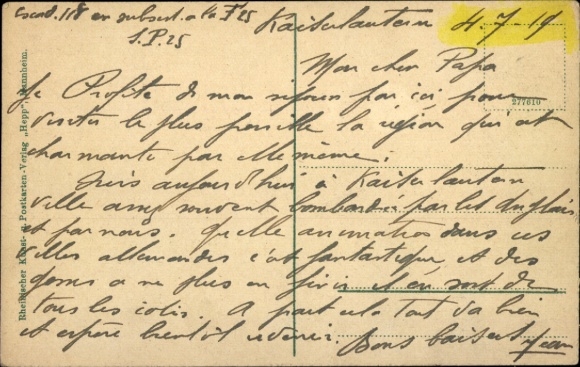 Escad. 118 en subsist. a la F 25
S.P. 25
Kaiserlautern 4-7-19
Mon cher Papa
Je Profite de mon séjour par ici pour
visiter le plus possible la région qui est
charmante par elle même.
Suis aujourd'hui à Kaiserlautern
ville assez souvent bombardée par les Anglais
et par nous. Quelle animation dans ces
villes allemandes c'est fantastique et des
gosses a ne plus en finir il en sort de
tous les cotés. A part cela tout va bien
et espère bientôt revenir. Bons baisers Jean
277610
Rheinischer Kunst- u. Postkarten-Verlag „Hepp", Mannheim.